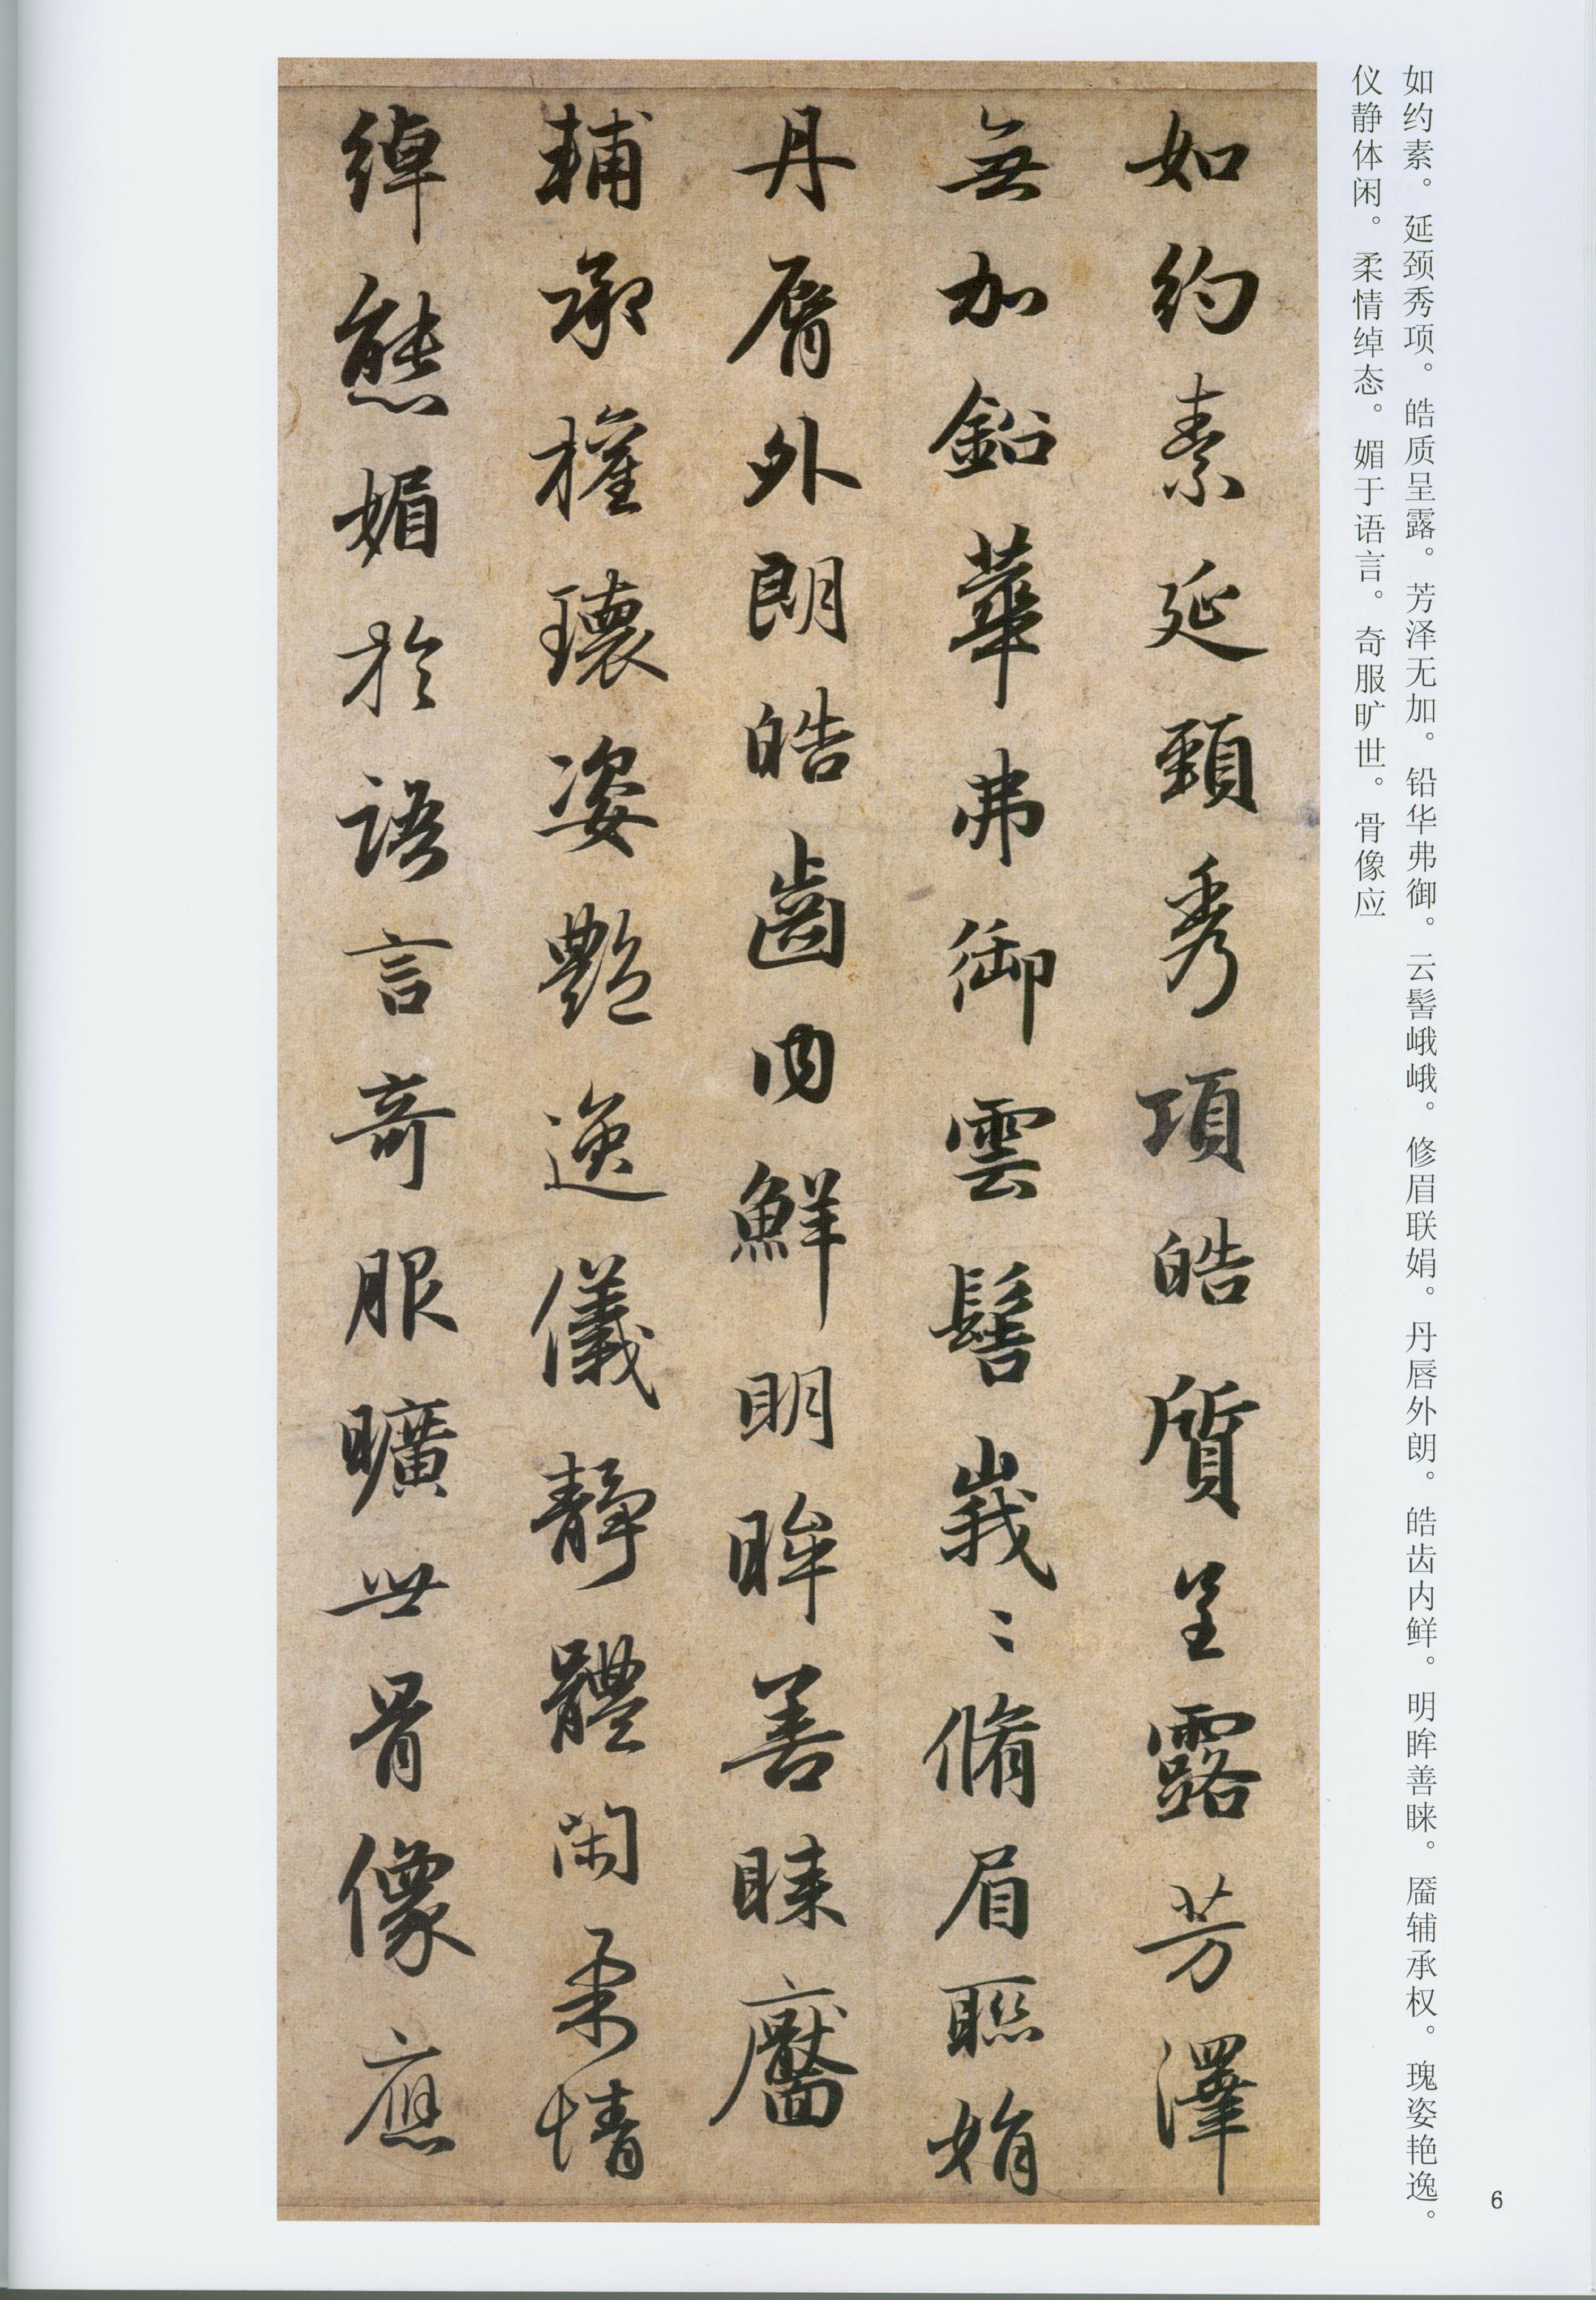 如约素。延颈秀项。皓质呈露。芳泽无加。铅华弗御。云髻峨峨。修眉联娟。丹唇外朗。皓齿内鲜。明眸善睐。靥辅承权。瑰姿艳逸。
仪静体闲。柔情绰态。媚于语言。奇服旷世。骨像应
如約素延頸秀項皓質呈露芳澤
無加鉛華弗御雲髻峩〻脩眉聯娟
丹脣外朗皓齒内鮮明眸善睞靨
輔承權瓌姿艷逸儀靜體閑柔情
綽態媚於語言奇服曠世骨像應
6